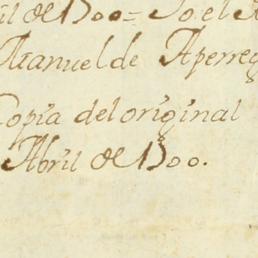 il de 1700 = Yo el
Manuel de Aperreg
Copia del original
Abril de 1700.